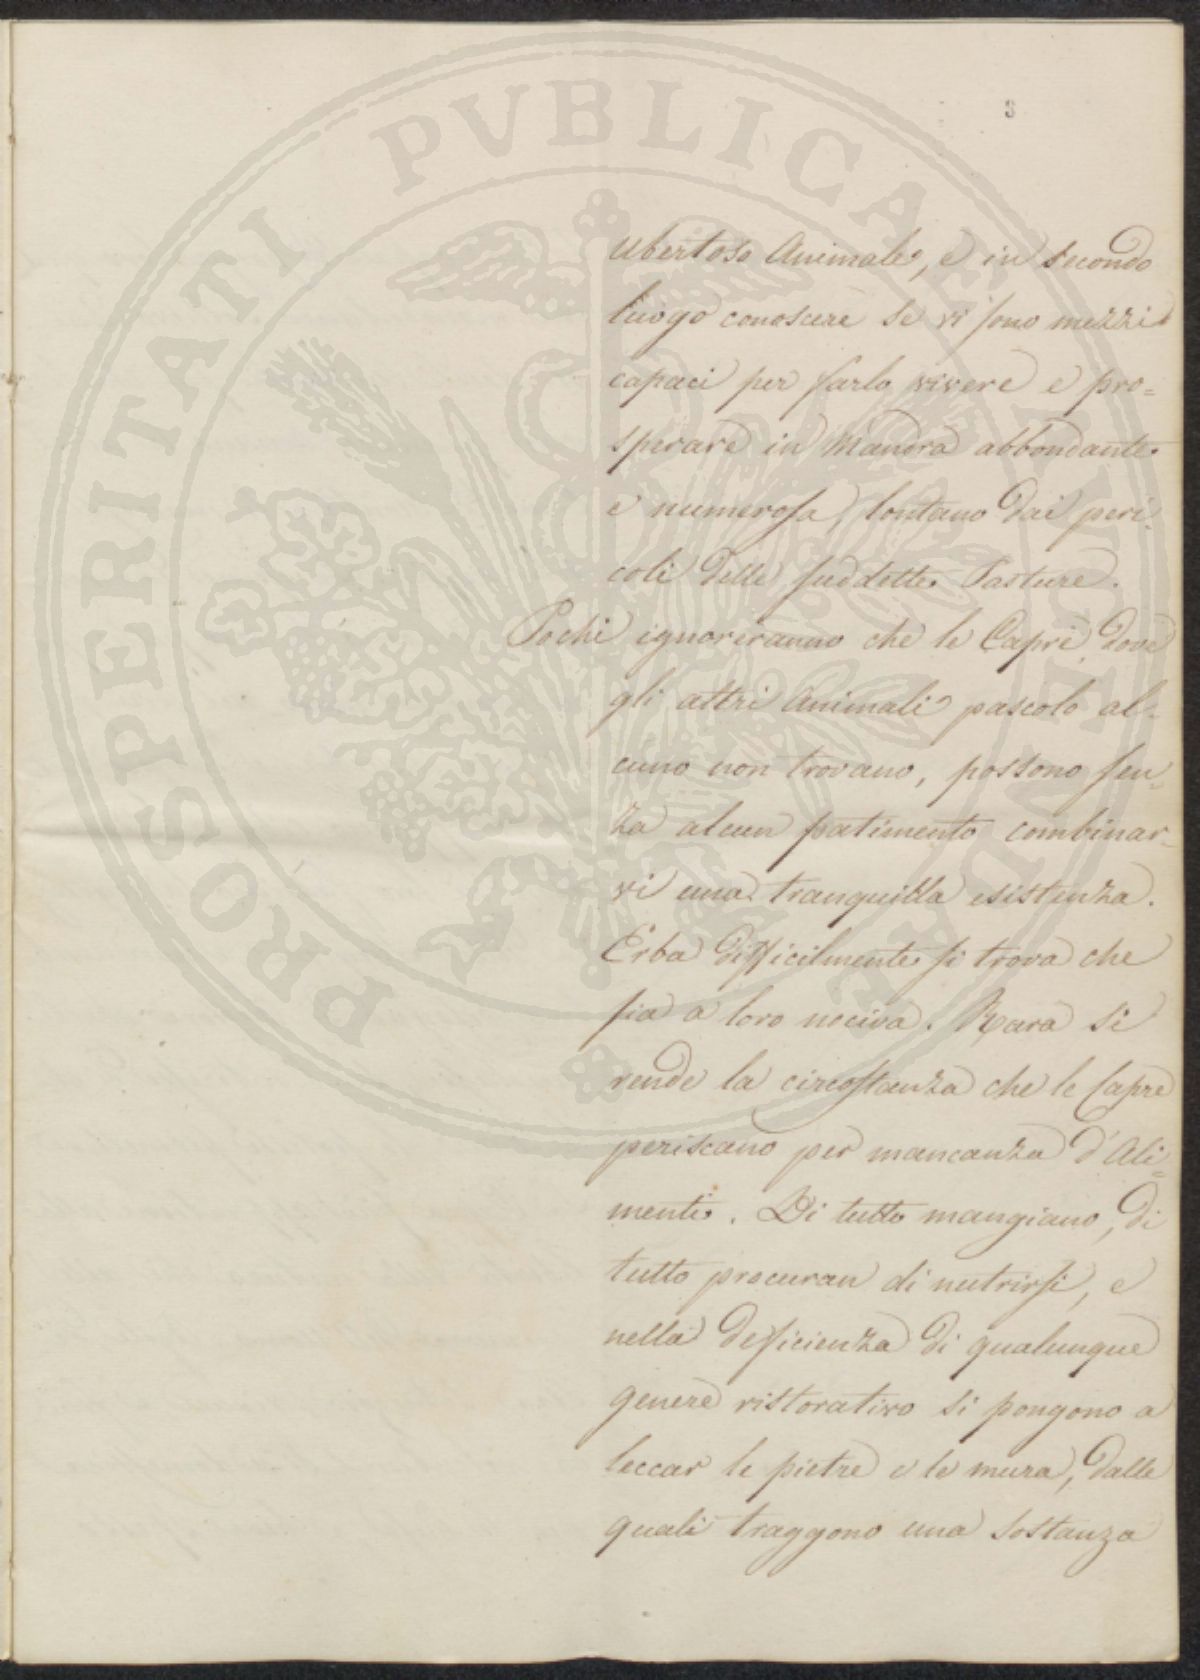 3
ubertoso Animale, e in secondo
luogo conoscere se vi sono mezzi
capaci per farlo vivere e pro=
sperare in Mandra abbondante
e numerosa, lontano dai peri=
coli delle suddette Pasture.
Pochi ignoreranno che le Capre, dove
gli altri Animali pascolo al=
cuno non trovano, possono sen=
za alcun patimento combinar=
vi una tranquilla esistenza.
Erba difficilmente si trova che
sia a loro nociva. Rara si
rende la circostanza che le Capre
periscano per mancanza d'Ali=
menti. Di tutto mangiano, di
tutto procuran di nutrirsi, e
nella deficienza di qualunque
genere ristorativo si pongono a
leccar le pietre e le mura, dalle
quali traggono una sostanza
PROSPERITATI PVBLICAE AVGENDAE